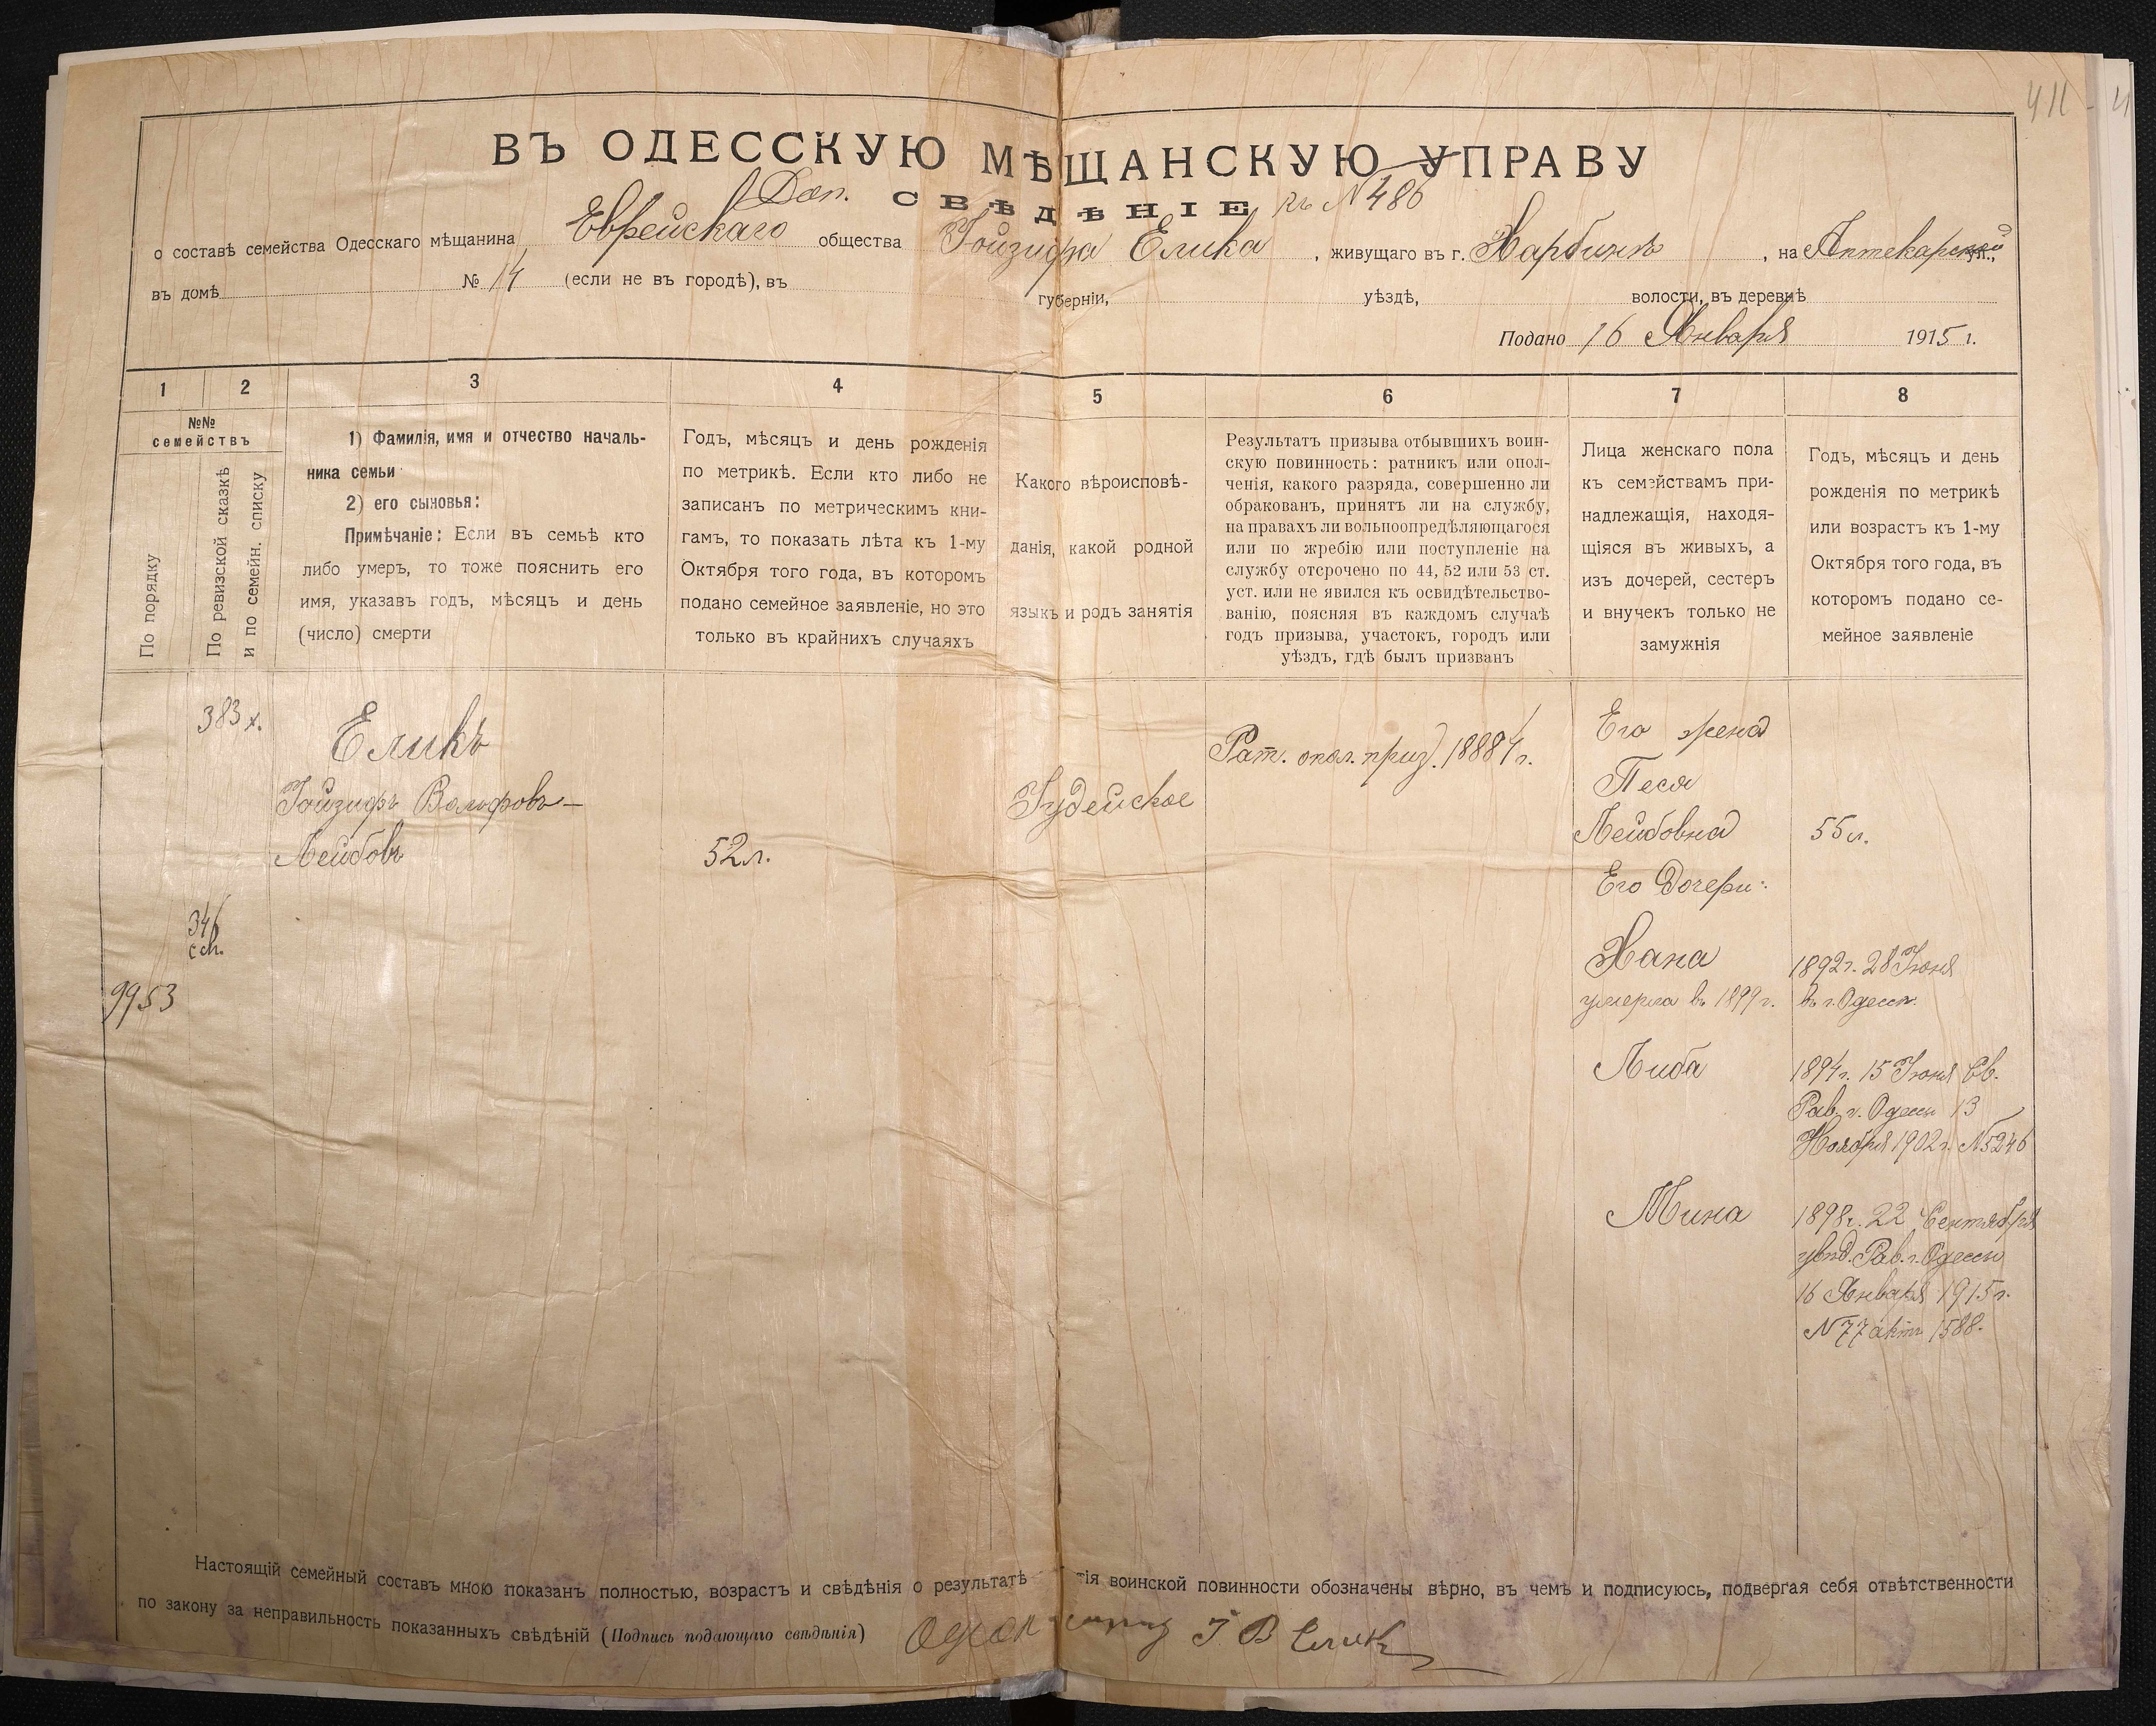 411
ВЪ ОДЕССКУЮ МѢЩАНСКУЮ УПРАВУ
Доп. СВѢДѢНІЕ къ № 486
о составѣ семейства Одесскаго мѣщанина Еврейскаго общества Іойзифа Елика, живущаго въ г. Харбинѣ, на Аптекарской ул.,
въ домѣ № 14 (если не въ городѣ), въ губерніи, уѣздѣ, волости, въ деревнѣ
Подано 16 Января 1915 г.
1 2 3 4 5 6 7 8
№№
семействъ
По порядку
По ревизской сказкѣ
и по семейн. списку
1) Фамилія, имя и отчество началь-
ника семьи
2) его сыновья:
Примѣчаніе: Если въ семьѣ кто
либо умеръ, то тоже пояснить его
имя, указавъ годъ, мѣсяцъ и день
(число) смерти
Годъ, мѣсяцъ и день рожденія
по метрикѣ. Если кто либо не
записанъ по метрическимъ кни-
гамъ, то показать лѣта къ 1-му
Октября того года, въ которомъ
подано семейное заявленіе, но это
только въ крайнихъ случаяхъ
Какого вѣроисповѣ-
данія, какой родной
языкъ и родъ занятія
Результатъ призыва отбывшихъ воин-
скую повинность: ратникъ или опол-
ченія, какого разряда, совершенно ли
обракованъ, принятъ ли на службу,
на правахъ ли вольноопредѣляющагося
или по жребію или поступленіе на
службу отсрочено по 44, 52 или 53 ст.
уст. или не явился къ освидѣтельство-
ванію, поясняя въ каждомъ случаѣ
годъ призыва, участокъ, городъ или
уѣздъ, гдѣ былъ призванъ
Лица женскаго пола
къ семействамъ при-
надлежащія, находя-
щіяся въ живыхъ, а
изъ дочерей, сестеръ
и внучекъ только не
замужнія
Годъ, мѣсяцъ и день
рожденія по метрикѣ
или возрастъ къ 1-му
Октября того года, въ
которомъ подано се-
мейное заявленіе
383 х.
346
9953
Еликъ
Іойзифъ Вольфовъ-
Лейбовъ
52 л.
Іудейское
Рат. опол. приз.
Его жена
Песя
Лейбовна
55 л.
Его дочери:
Хана
умерла въ 1899 г.
1892 г. 28 Іюня
въ г. Одессѣ.
Либа
1894 г. 15 Іюня Св.
Рав. г. Одессы 13
Ноября 1902 г. № 5246
Мина
1898 г. 22 Сентября
увѣд. Рав. г. Одессы
16 Января 1915 г.
№ 77 актъ 1588.
Настоящій семейный составъ мною показанъ полностью, возрастъ и свѣдѣнія о результатѣ тія воинской повинности обозначены вѣрно, въ чемъ и подписуюсь, подвергая себя отвѣтственности
по закону за неправильность показанныхъ свѣдѣній (Подпись подающаго свѣдѣнія) І В Еликъ